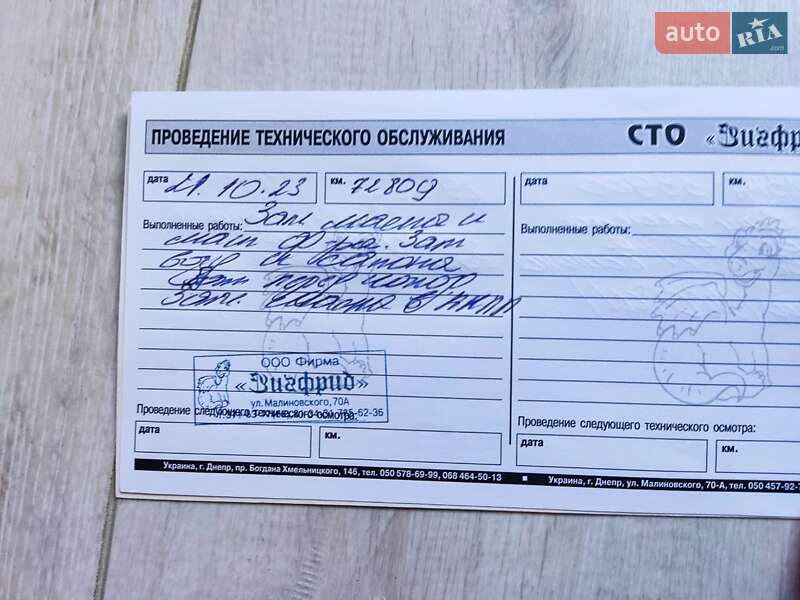 auto RIA .com
ПРОВЕДЕНИЕ ТЕХНИЧЕСКОГО ОБСЛУЖИВАНИЯ
СТО «Зигфр
дата 21.10.23 км. 72809
дата км.
Выполненные работы: Зам масла и
Выполненные работы:
масл ф-ра. Зам
возд и салона
Зам перед колод
Зам. масла в АКПП
ООО Фирма
«Зигфрид»
ул. Малиновского, 70А
Проведение следующего технического осмотра:
Проведение следующего технического осмотра:
дата км.
дата км.
Украина, г. Днепр, пр. Богдана Хмельницкого, 146, тел. 050 578-69-99, 068 464-50-13
Украина, г. Днепр, ул. Малиновского, 70-А, тел. 050 457-92-7